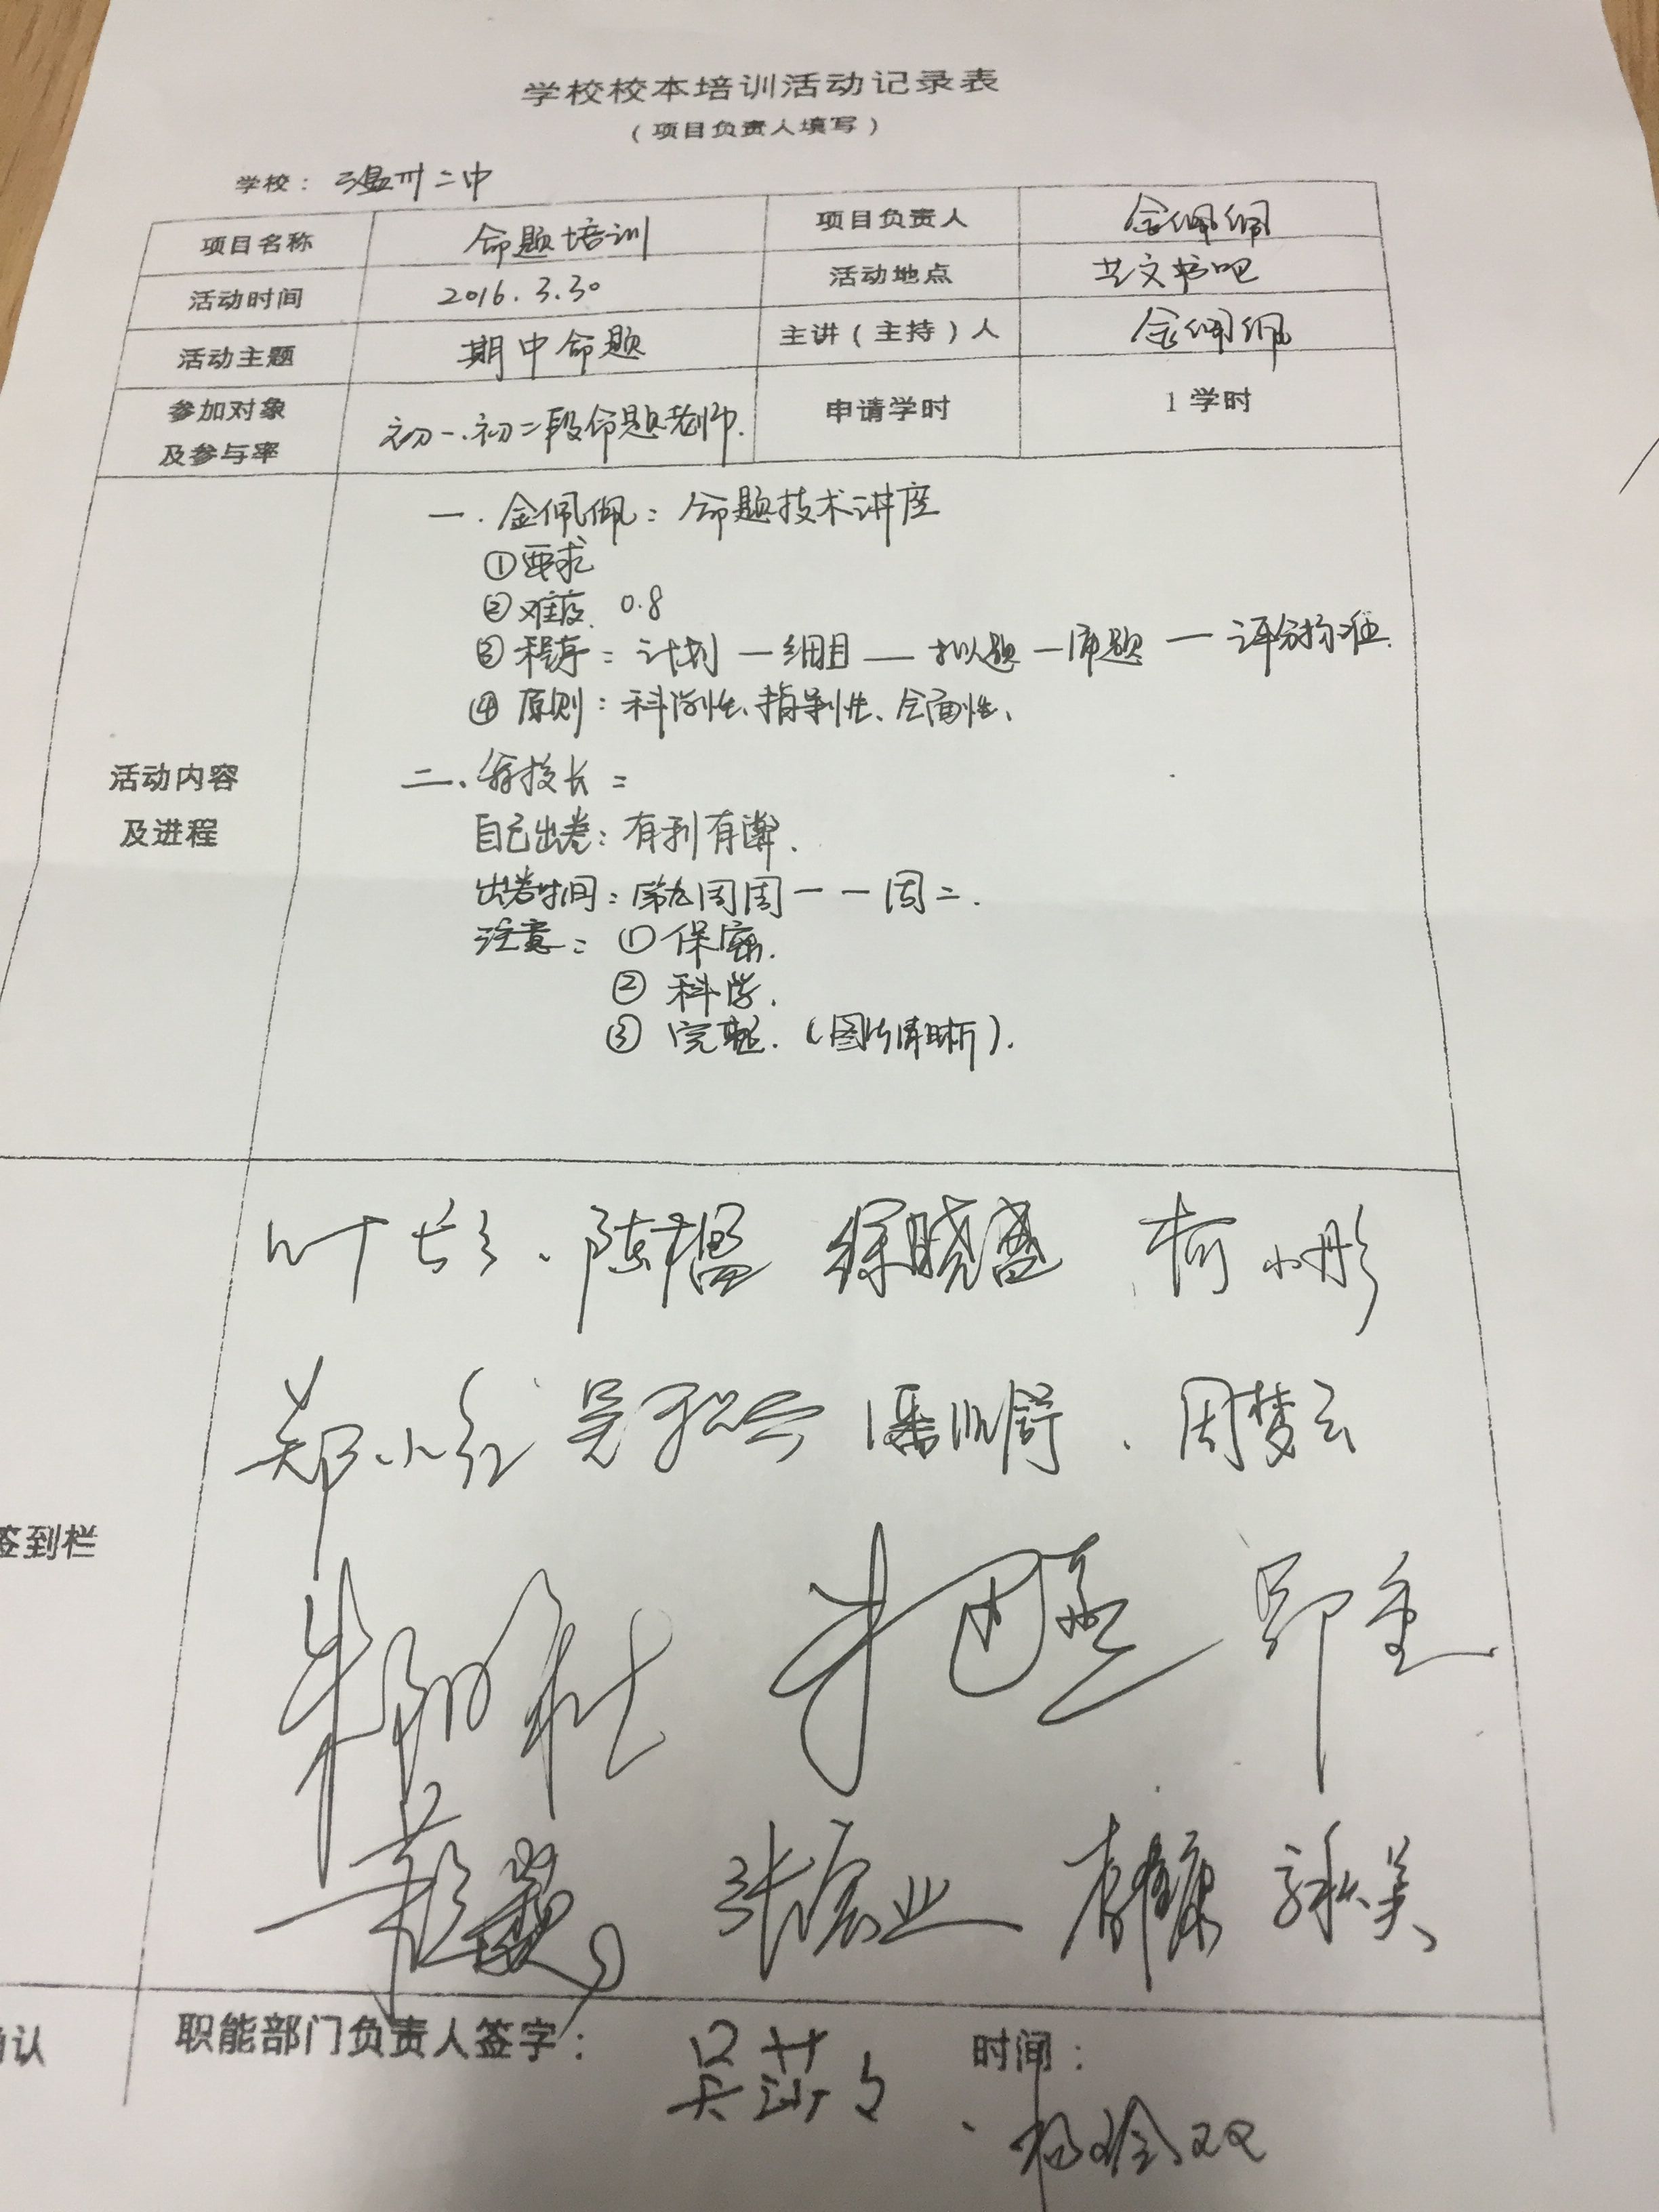 学校校本培训活动记录表
（项目负责人填写）
学校：温州二中
项目名称 命题培训 项目负责人 金佩佩
活动时间 2016.3.30 活动地点 艺文书吧
活动主题 期中命题 主讲（主持）人 金佩佩
参加对象及参与率 初一、初二段命题老师. 申请学时 1学时
活动内容
及进程
一.金佩佩：命题技术讲座
①要求
②难度 0.8
③程序：计划—细目—拟题—审题—评分标准.
④原则：科学性、指导性、全面性、
二、翁校长：
自己出卷：有利有弊.
出卷时间：第九周周一一周二.
注意：①保密.
②科学.
③完整.（图片清晰）.
陈楹 徐晓蕾 柯小彤
郑小红 周梦云
签到栏
张宏业
认
职能部门负责人签字： 吴莎 时间：